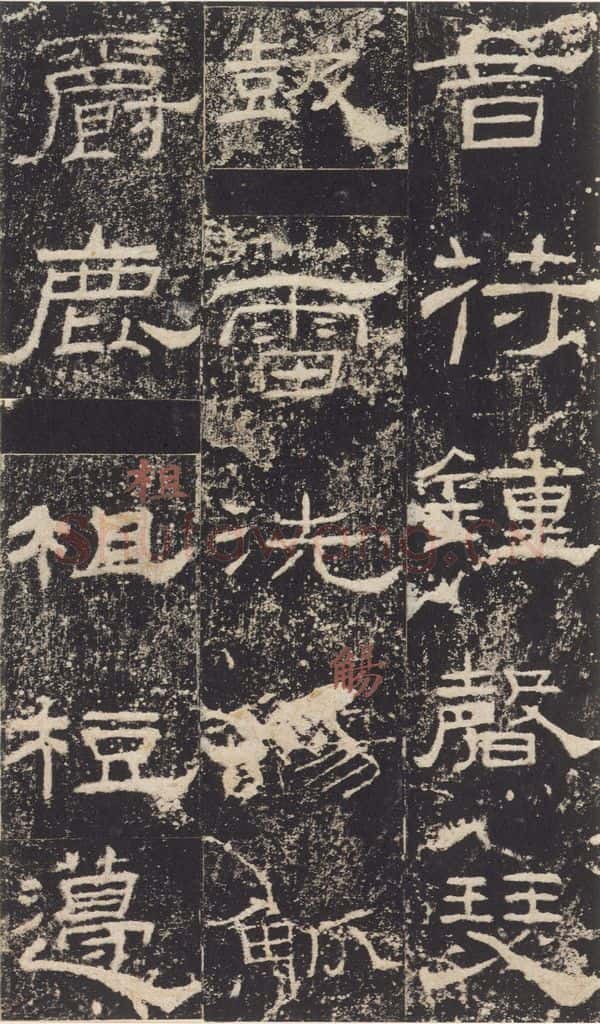 音苻鍾磬瑟
鼓雷洗觴觚
觴
爵鹿柤梪籩
柤
shufawang.cn